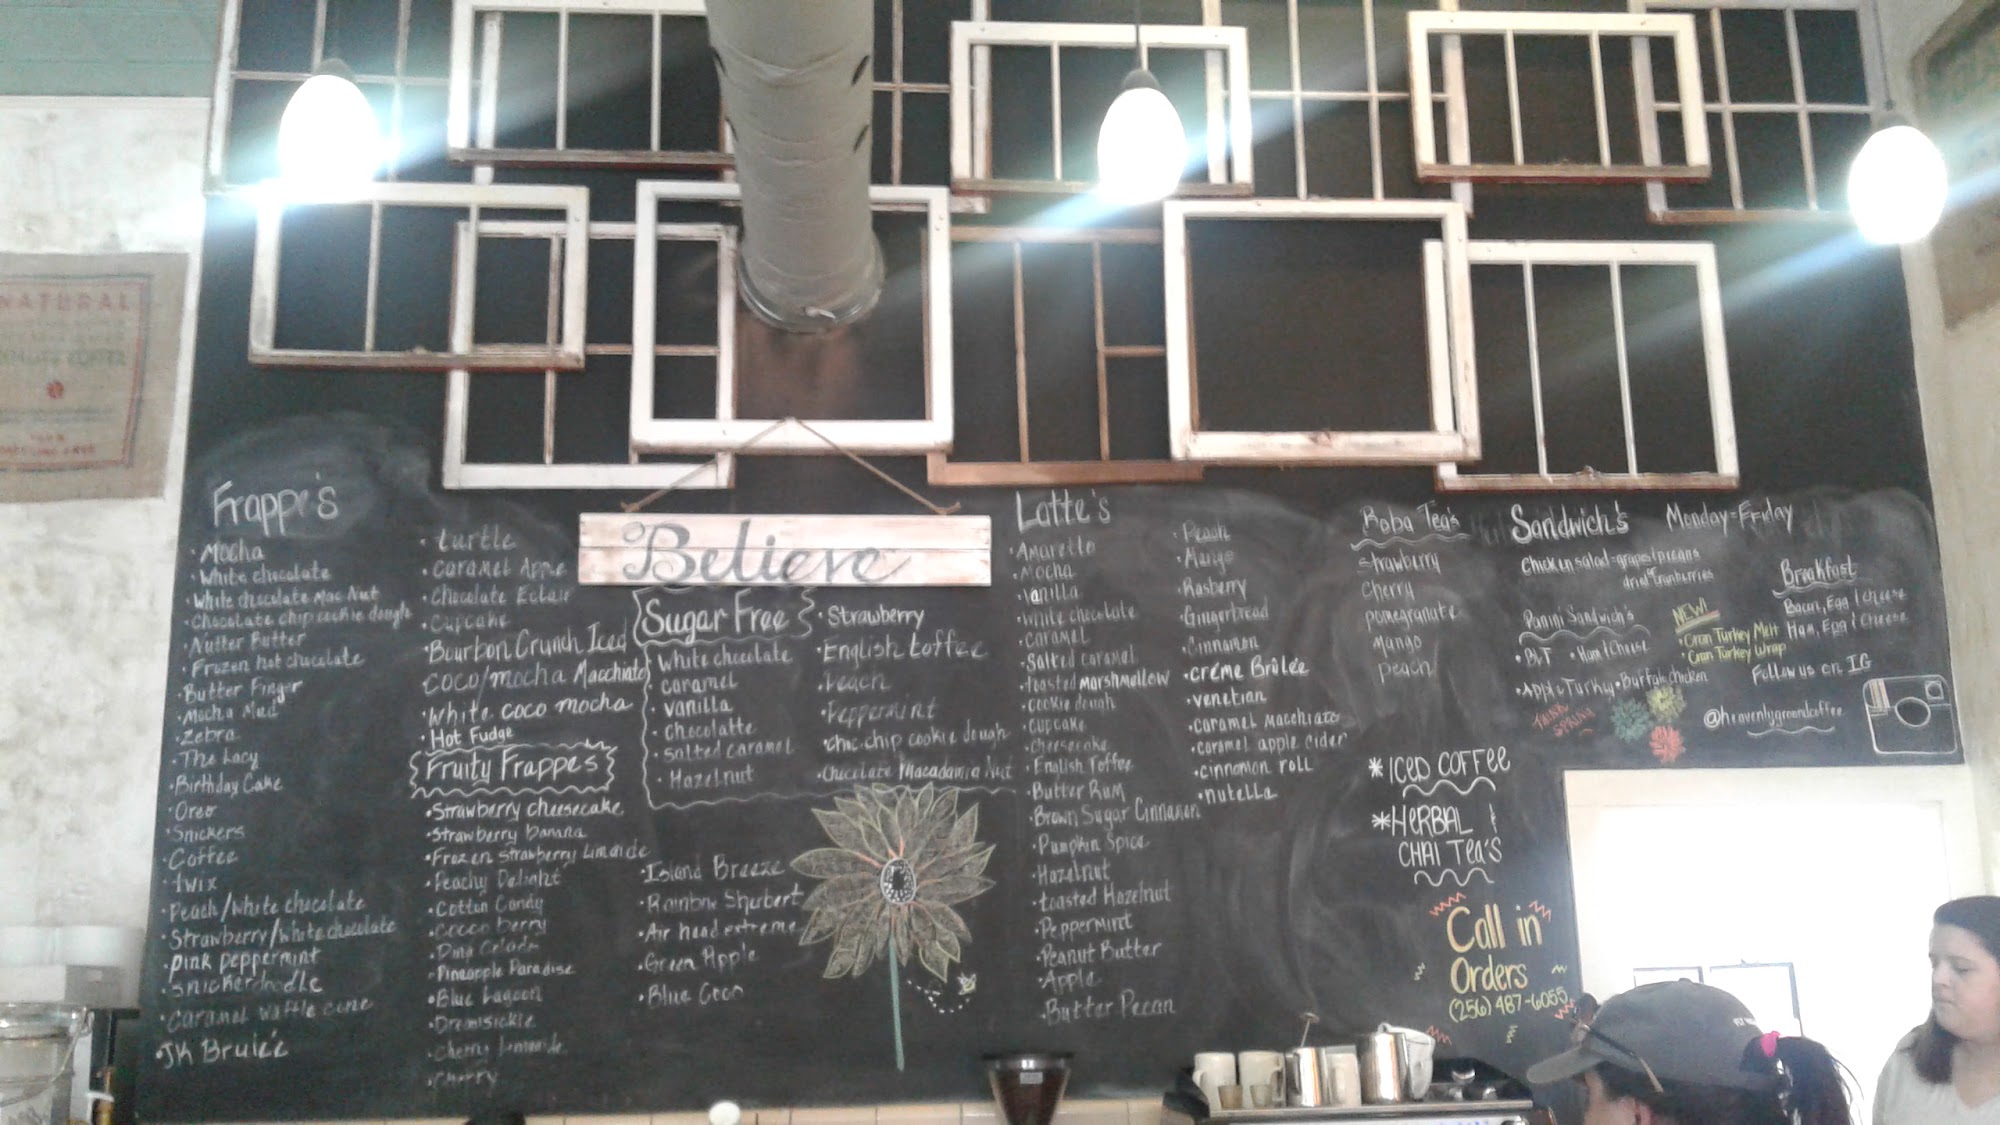 NATURAL
Frappe's
• Mocha
• White chocolate
• White chocolate Mac Nut
• Chocolate chip cookie dough
• Nutter Butter
• Frozen hot chocolate
• Butter Finger
• Mocha Mud
• Zebra
• The Lacy
• Birthday Cake
• Oreo
• Snickers
• Coffee
• twix
• Peach/White chocolate
• Strawberry/White chocolate
• pink peppermint
• snickerdoodle
• Caramel waffle cone
• turtle
• Caramel Apple
• Chocolate Eclair
• Cupcake
• Bourbon Crunch Iced
coco/mocha Macchiato
• White coco mocha
• Hot Fudge
Fruity Frappes
• Strawberry cheesecake
• Strawberry banana
• Frozen Strawberry Limonide
• Peachy Delight
• Cotton Candy
• Coco berry
• Pina Colada
• Pineapple Paradise
• Blue Lagoon
• Dremsickle
• Cherry
• Island Breeze
• Rainbow Sherbert
• Air head extreme
• Green Apple
• Blue Coco
Believe
Sugar Free
• White chocolate
• caramel
• vanilla
• chocolatte
• salted caramel
• Hazelnut
• Strawberry
• English toffee
• Peach
• Peppermint
• choc.chip cookie dough
• Chocolate Macadamia Nut
Latte's
• Amaretto
• Mocha
• Vanilla
• White chocolate
• caramel
• salted caramel
• toasted marshmellow
• cookie dough
• cupcake
• cheesecake
• English Toffee
• Butter Rum
• Brown Sugar Cinnamon
• Pumpkin Spice
• Hazelnut
• toasted Hazelnut
• Peppermint
• Peanut Butter
• Apple
• Butter Pecan
• Peach
• Mango
• Rasberry
• Gingerbread
• Cinnamon
• créme Brûlée
• venetian
• caramel Macchiato
• caramel apple cider
• cinnamon roll
• nutella
Boba Tea's
Strawberry
Cherry
pomegranate
mango
peach
* ICED COFFEE
* HERBAL &
CHAI Tea's
Call in
Orders
(256) 487-6055
Sandwich's Monday-Friday
Chicken salad-grapes/pecans
dried cranberries
Panini Sandwich's
• BLT • Ham & Cheese
• Apple Turkey • Buffalo chicken
THINK
SPRING
NEW!
• Cran Turkey Melt
• Cran Turkey Wrap
Breakfast
Bacon, Egg & cheese
Ham, Egg & Cheese
Follow us on IG
@heavenlygroundcoffee